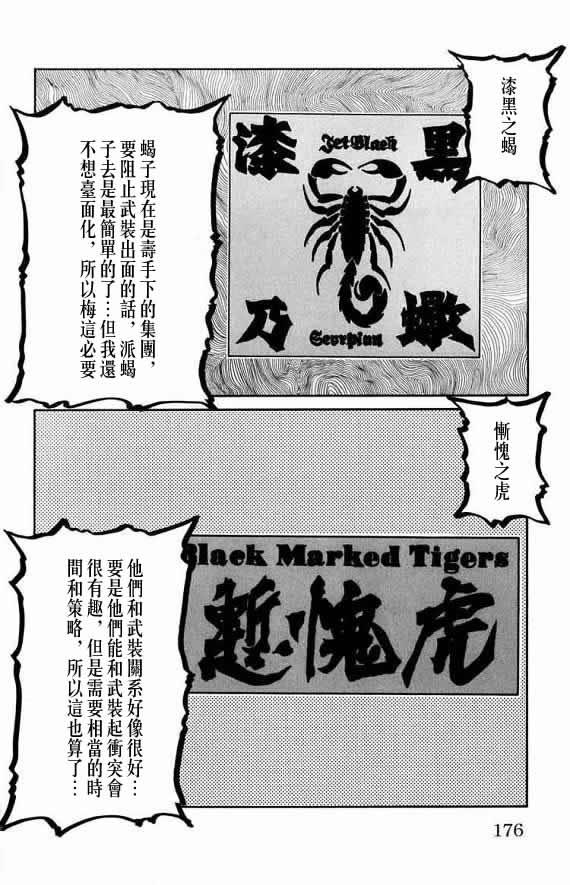 漆黑之蝎
漆黑
Jet Black
乃蠍
Scorpion
蝎子現在是壽手下的集團，
要阻止武裝出面的話，派蝎
子去是最簡單的了…但我還
不想臺面化，所以梅這必要
慚愧之虎
Black Marked Tigers
慙愧虎
他們和武裝關系好像很好…
要是他們能和武裝起衝突會
很有趣，但是需要相當的時
間和策略，所以這也算了…
176